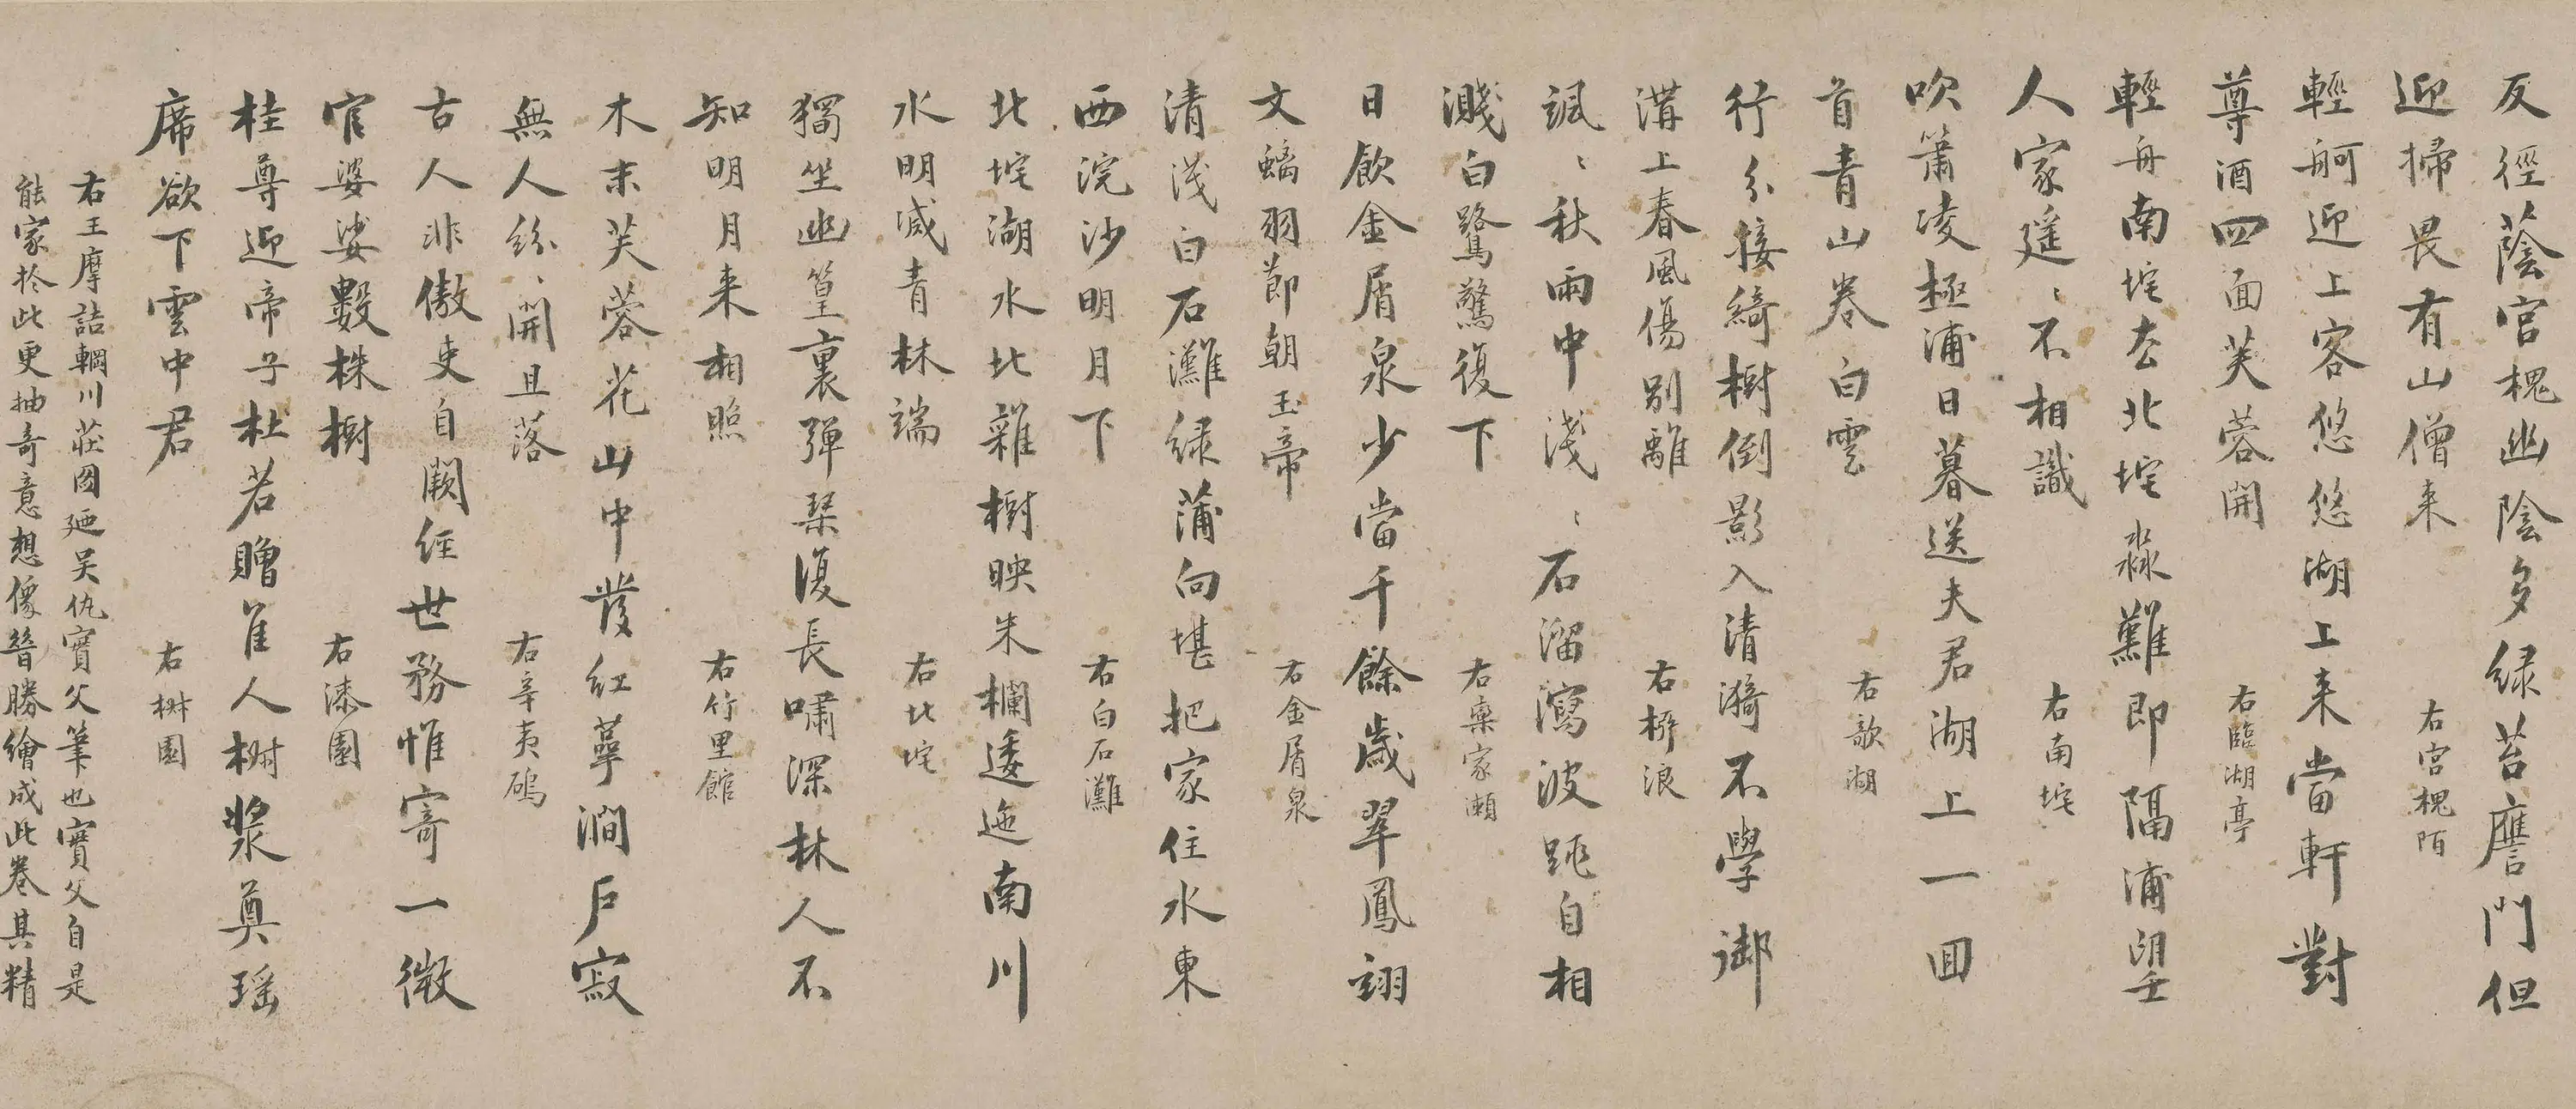 反徑蔭宫槐幽陰多緑苔譍門但
迎掃畏有山僧来
右宫槐陌
輕舸迎上客悠悠湖上来當軒對
尊酒四面芙蓉開
右臨湖亭
輕舟南垞去北垞淼難即隔浦望
人家遥〻不相識
右南垞
吹簫凌極浦日暮送夫君湖上一囬
首青山卷白雲
右欹湖
行分接綺樹倒影入清漪不學御
溝上春風傷别離
右桺浪
颯〻秋雨中淺〻石溜瀉波跳自相
濺白鷺驚復下
右欒家瀬
日飲金屑泉少當千餘歳翠鳳翊
文螭羽節朝玉帝
右金屑泉
清浅白石灘緑蒲向堪把家住水東
西浣沙明月下
右白石灘
北垞湖水北雜樹映朱欄逶迤南川
水明滅青林端
右北垞
獨坐幽篁裏弾琹復長嘯深林人不
知明月来相照
右竹里館
木末芙蓉花山中發红萼澗戸寂
無人紛〻開且落
右辛夷塢
古人非傲吏自闕经世務惟寄一微
官婆娑數株樹
右漆園
桂尊迎帝子杜若贈佳人椒漿奠瑶
席欲下雲中君
右椒園
右王摩詰輞川莊圖廼吴仇實父筆也實父自是
能家於此更抽奇意想像晉勝繪成此卷其精